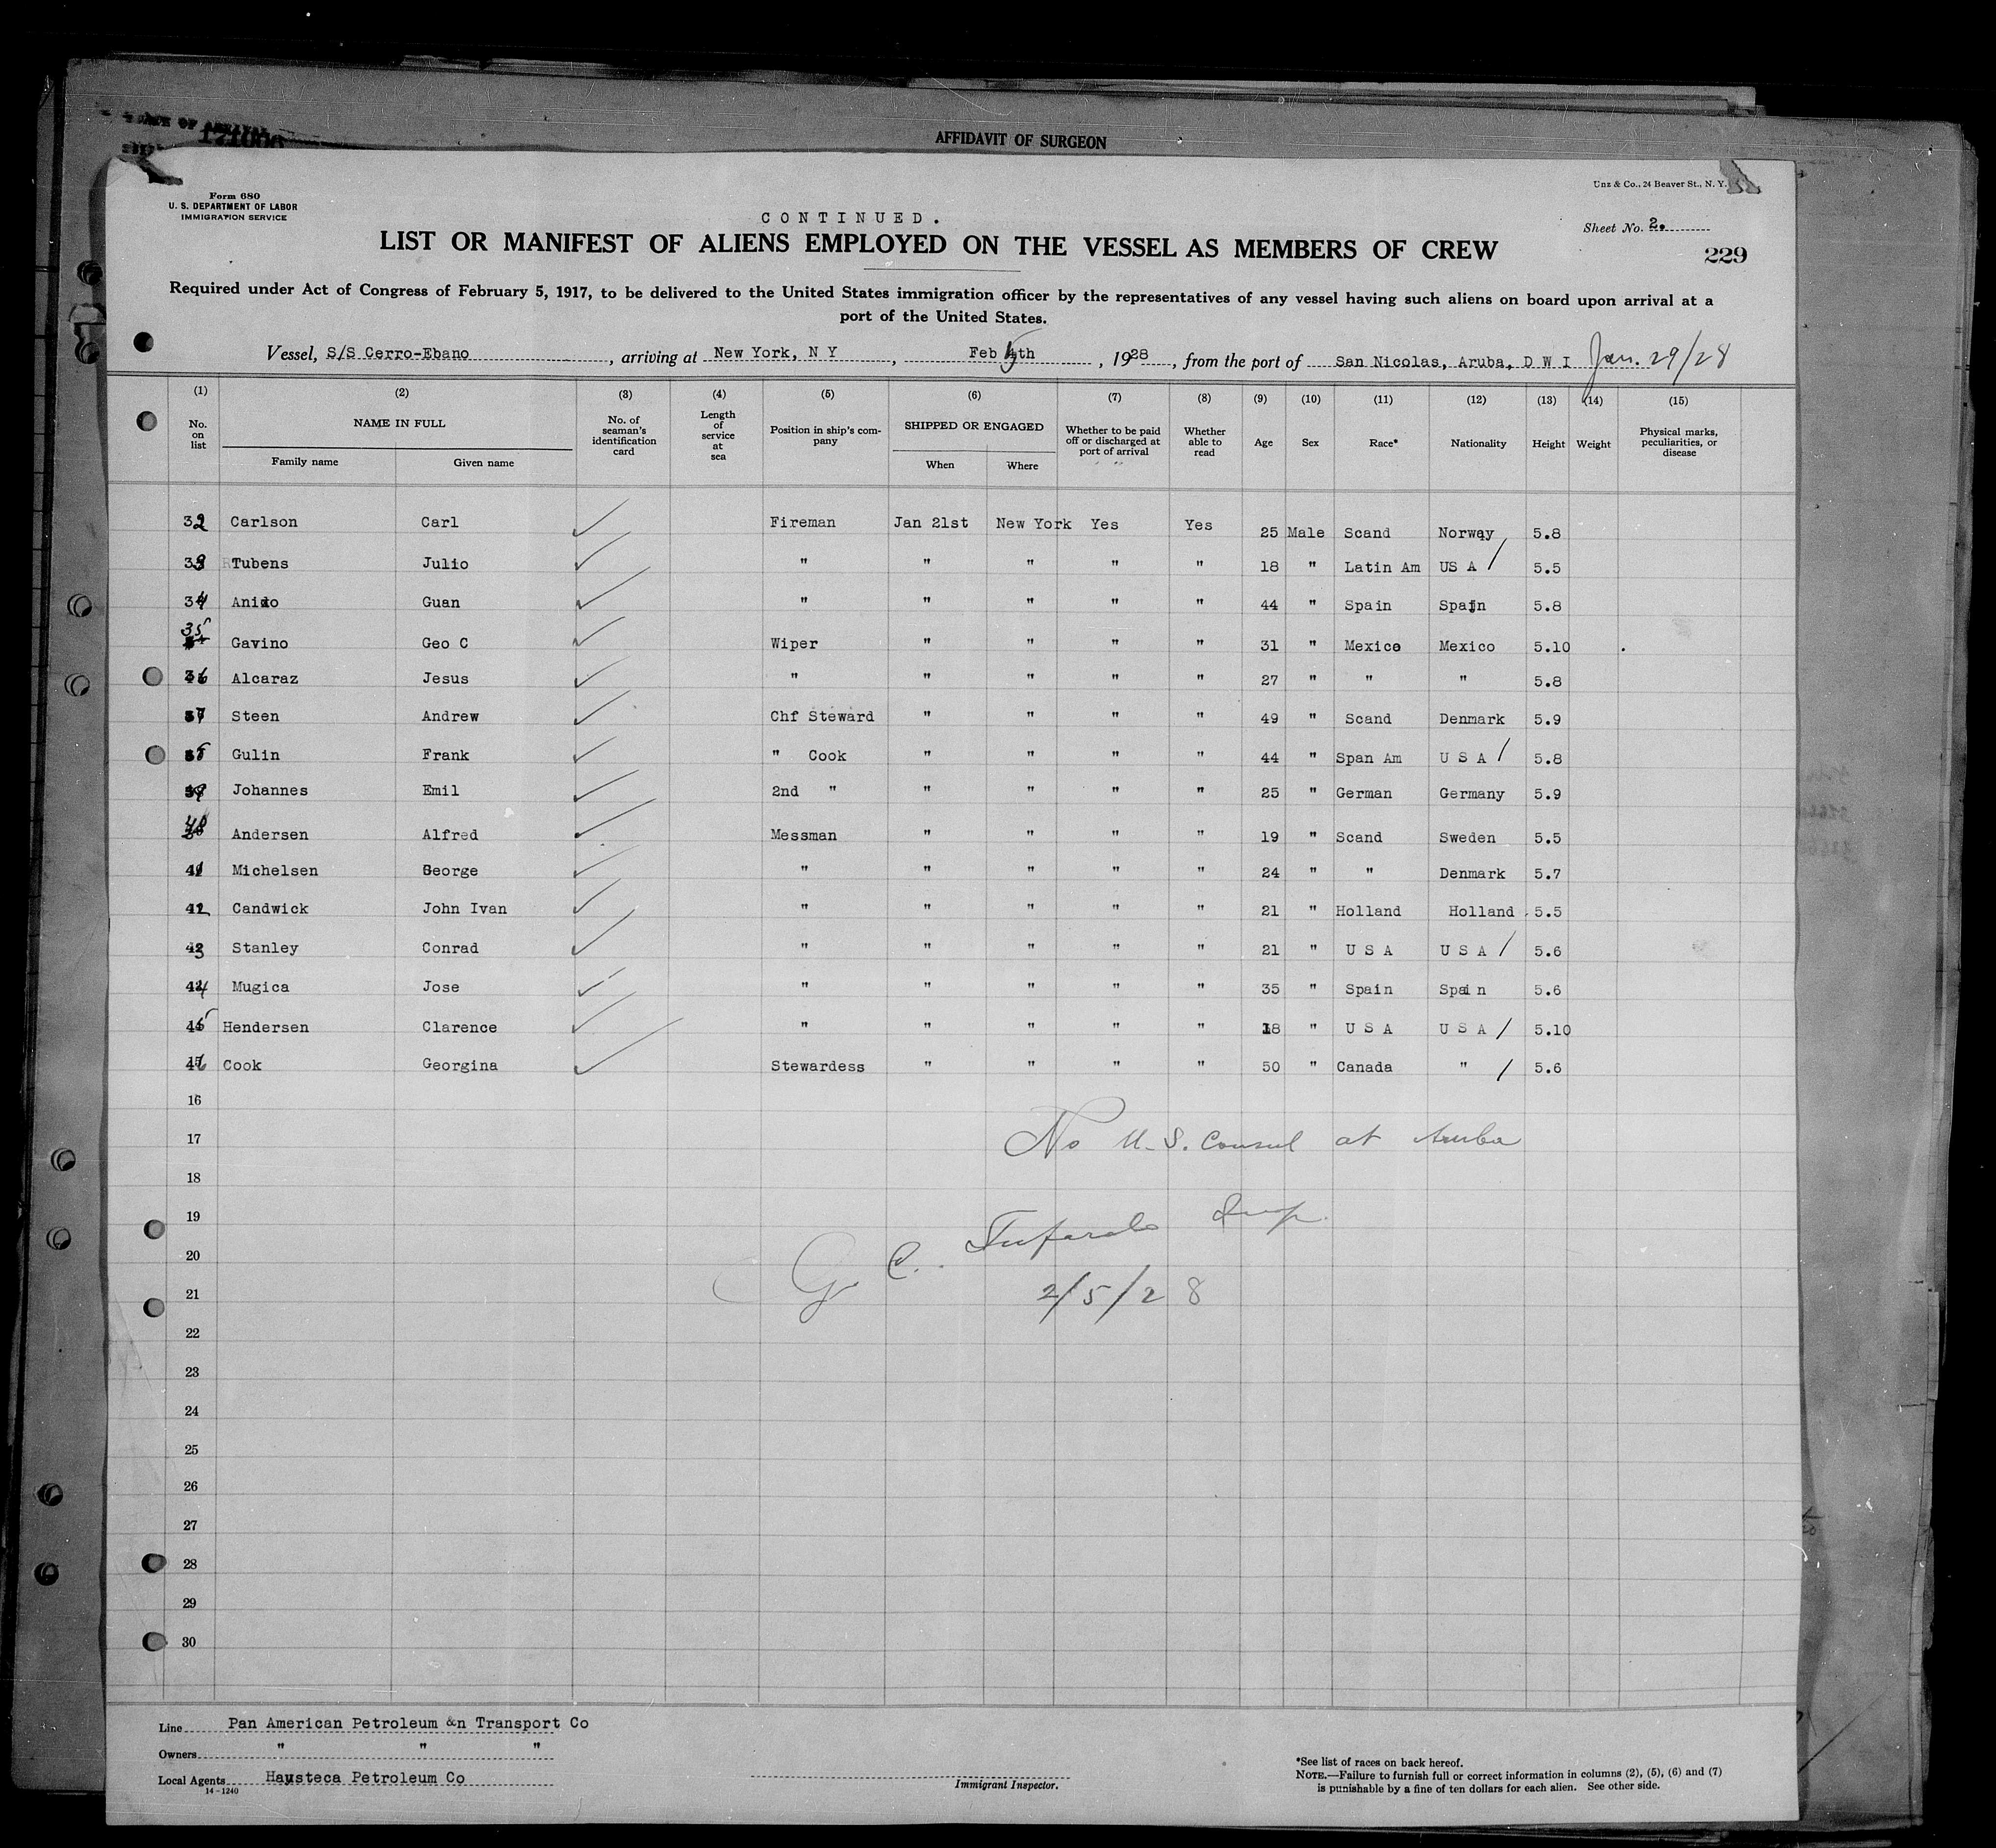 171000
AFFIDAVIT OF SURGEON
Form 680
U. S. DEPARTMENT OF LABOR
IMMIGRATION SERVICE
Unz & Co., 24 Beaver St., N. Y.
CONTINUED.
Sheet No. 2.
LIST OR MANIFEST OF ALIENS EMPLOYED ON THE VESSEL AS MEMBERS OF CREW
229
Required under Act of Congress of February 5, 1917, to be delivered to the United States immigration officer by the representatives of any vessel having such aliens on board upon arrival at a
port of the United States.
Vessel, S/S Cerro-Ebano, arriving at New York, N Y, Feb 5th, 1928, from the port of San Nicolas, Aruba, D W I Jan. 29/28
(1) (2) (3) (4) (5) (6) (7) (8) (9) (10) (11) (12) (13) (14) (15)
No. on list NAME IN FULL Family name Given name No. of seaman's identification card Length of service at sea Position in ship's company SHIPPED OR ENGAGED When Where Whether to be paid off or discharged at port of arrival Whether able to read Age Sex Race* Nationality Height Weight Physical marks, peculiarities, or disease
32 Carlson Carl Fireman Jan 21st New York Yes Yes 25 Male Scand Norway 5.8
33 Tubens Julio " " " " " 18 " Latin Am US A / 5.5
34 Anido Guan " " " " " 44 " Spain Spain 5.8
35 Gavino Geo C Wiper " " " " 31 " Mexico Mexico 5.10
36 Alcaraz Jesus " " " " " 27 " " " 5.8
37 Steen Andrew Chf Steward " " " " 49 " Scand Denmark 5.9
38 Gulin Frank " Cook " " " " 44 " Span Am U S A / 5.8
39 Johannes Emil 2nd " " " " " 25 " German Germany 5.9
40 Andersen Alfred Messman " " " " 19 " Scand Sweden 5.5
41 Michelsen George " " " " " 24 " " Denmark 5.7
42 Candwick John Ivan " " " " " 21 " Holland Holland 5.5
43 Stanley Conrad " " " " " 21 " U S A U S A / 5.6
44 Mugica Jose " " " " " 35 " Spain Spain 5.6
45 Hendersen Clarence " " " " " 18 " U S A U S A / 5.10
46 Cook Georgina Stewardess " " " " 50 " Canada " / 5.6
16
17 No U.S. Consul at Aruba
18
19
20 G. C. Insp.
21 2/5/28
22
23
24
25
26
27
28
29
30
Line Pan American Petroleum &n Transport Co
Owners " " "
Local Agents Haysteca Petroleum Co
14-1240
Immigrant Inspector.
*See list of races on back hereof.
NOTE.—Failure to furnish full or correct information in columns (2), (5), (6) and (7)
is punishable by a fine of ten dollars for each alien. See other side.